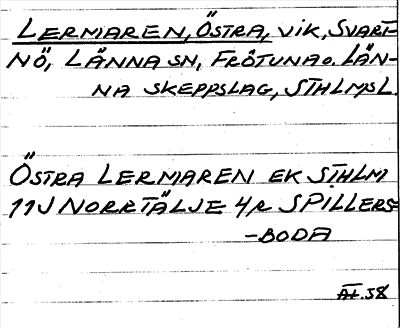 LERMAREN, ÖSTRA, VIK, SVART-
NÖ, LÄNNA SN, FRÖTUNA O. LÄN-
NA SKEPPSLAG, STHLMS L.
ÖSTRA LERMAREN EK STHLM
11J NORRTÄLJE 4/R SPILLERS=
-BODA